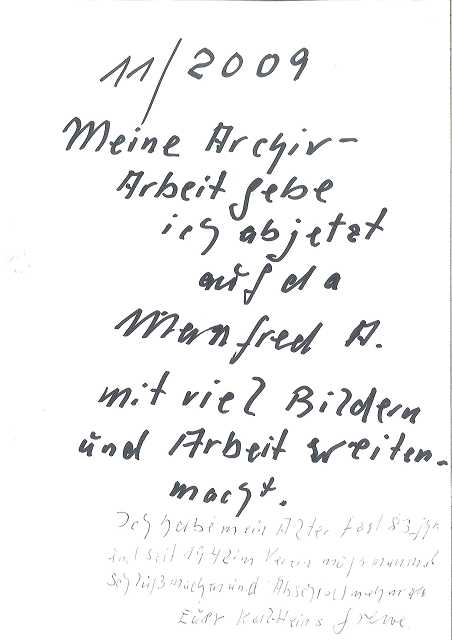 11/2009
Meine Archiv-
Arbeit gebe
ich abjetzt
auf da
Manfred A.
mit viel Bildern
und Arbeit weiten-
macht.
Ich habe mein Alter fast 83 jhr
und seit 1942 im Verein muß nunmal
Schluß machen und Abschied
Euer Karlheinz